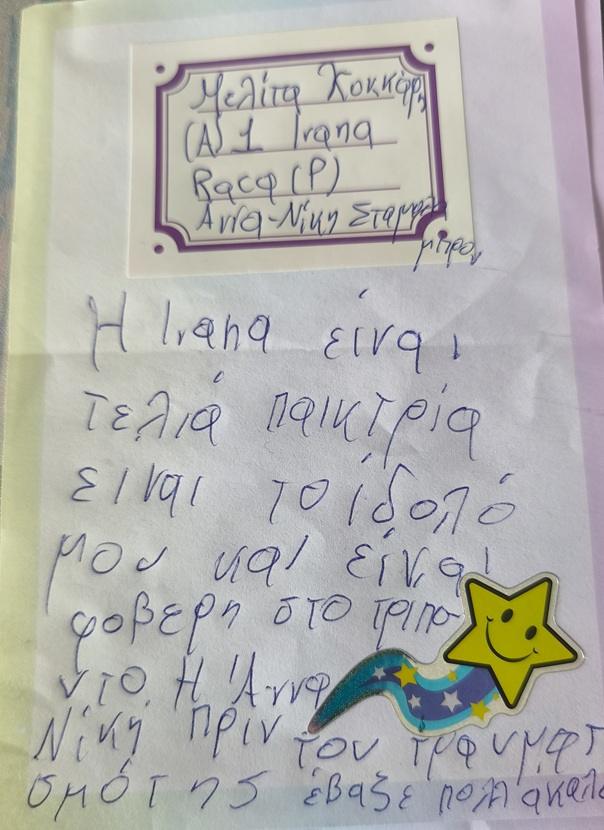 Μελίτα Κοκκάρη
(Α) 1 Ivana
Raca (P)
Αννα-Νίκη Σταμο
μπρου
Η Ivana είναι
τελιά παικτρία
ειναι το ίδολό
μου και είναι
φοβερη στο τριπο
ντο. Η Άννα
Νίκη πριν τον τραυματ
σμό της έβαζε πολλ ακαλα